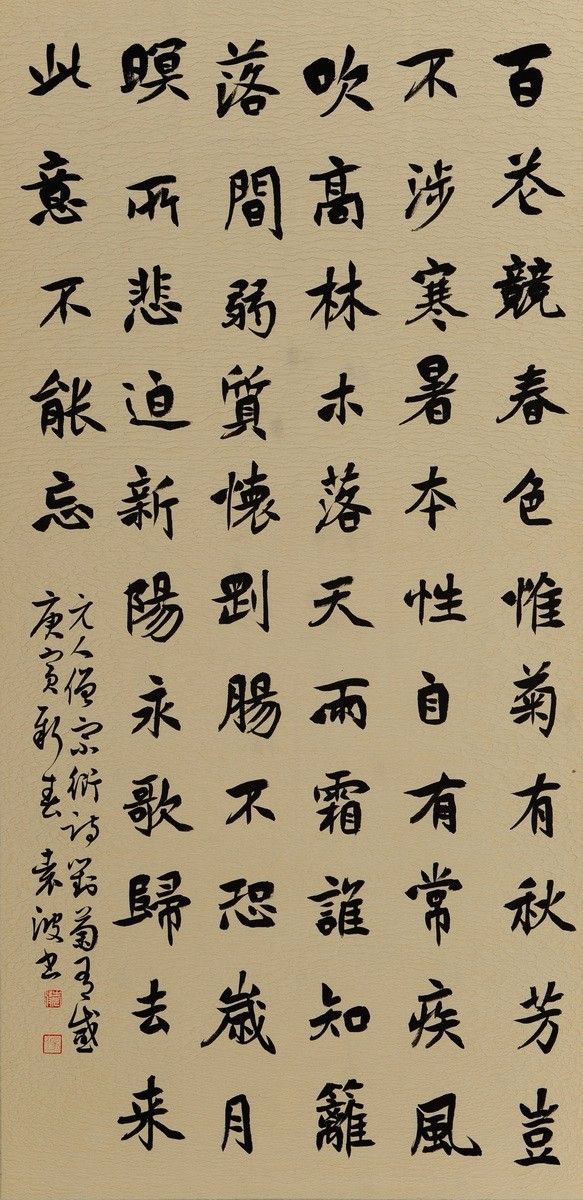 百花競春色惟菊有秋芳豈
不涉寒暑本性自有常疾風
吹高林木落天雨霜誰知籬
落間弱質懷剛腸不恐歲月
暝所悲迫新陽永歌歸去来
此意不能忘
元人僧宗衍詩對菊有感
庚寅新春袁波书